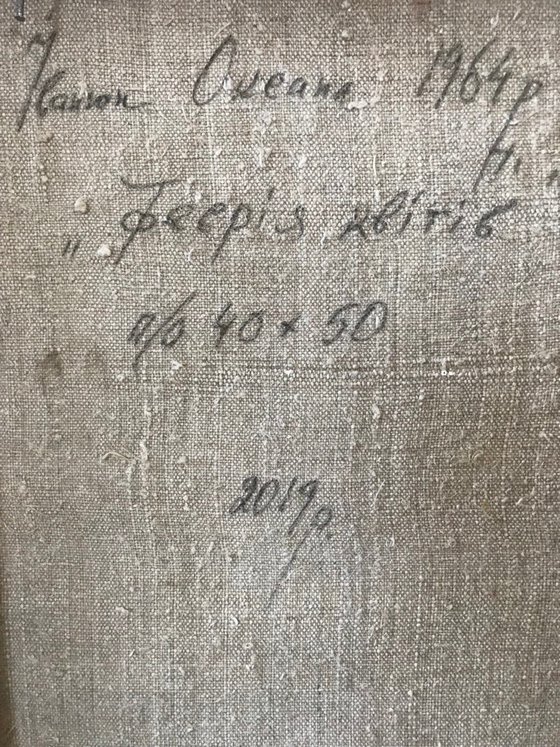 Івашон Оксана 1964р
н.
„Феєрія квітів
п/о 40 х 50
2019р.